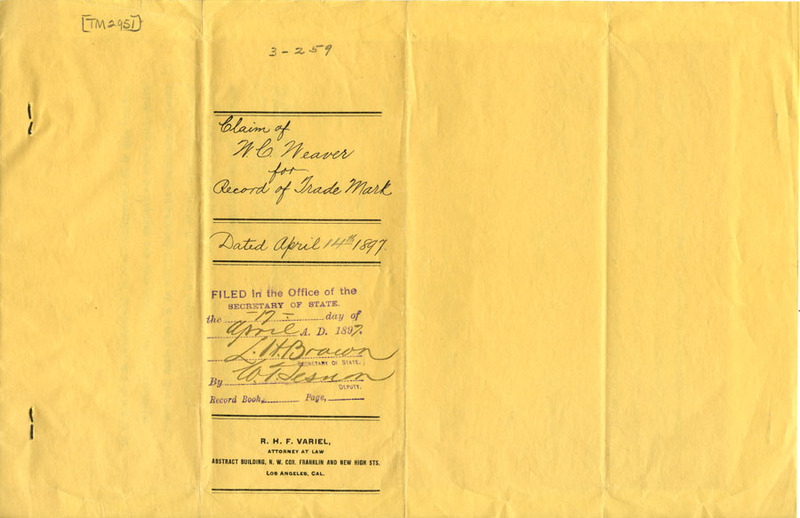 [TM2951]
3-259
Claim of
W.C. Weaver
for
Record of Trade Mark
Dated April 14th 1897.
FILED in the Office of the
SECRETARY OF STATE.
the 17 day of
April A. D. 1897.
L. H. Brown
SECRETARY OF STATE.
By W. T.
DEPUTY.
Record Book, Page,
R. H. F. VARIEL,
ATTORNEY AT LAW
ABSTRACT BUILDING, N. W. COR. FRANKLIN AND NEW HIGH STS.
LOS ANGELES, CAL.